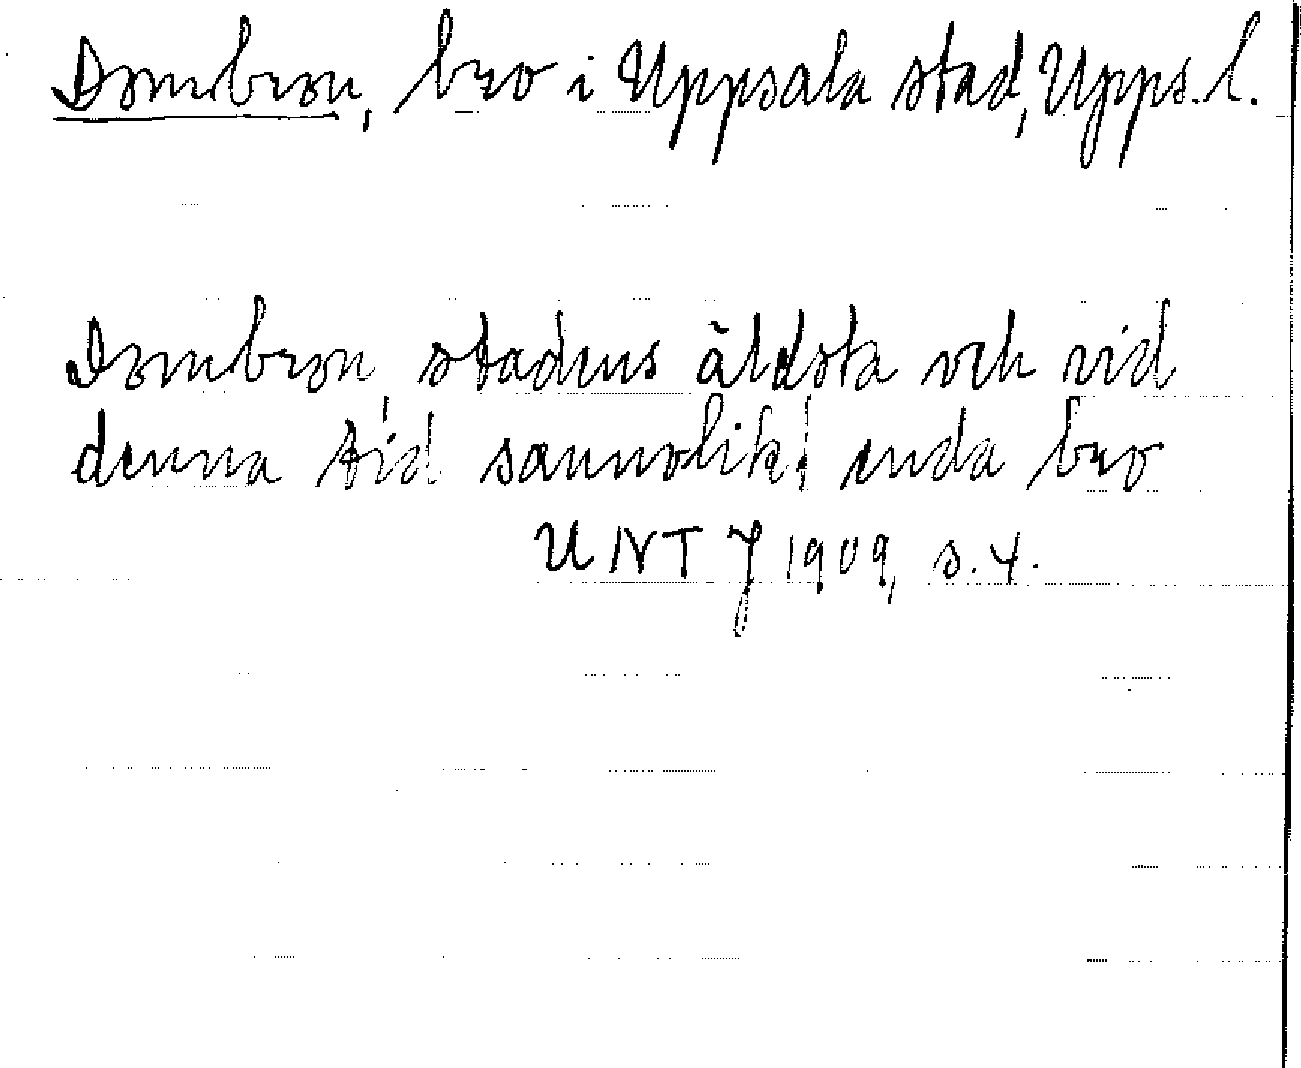 Dombron, bro i Uppsala stad, Upps. l.
Dombron, stadens äldsta och vid
denna tid sannolikt enda bro
UNT J 1909, s. 4.